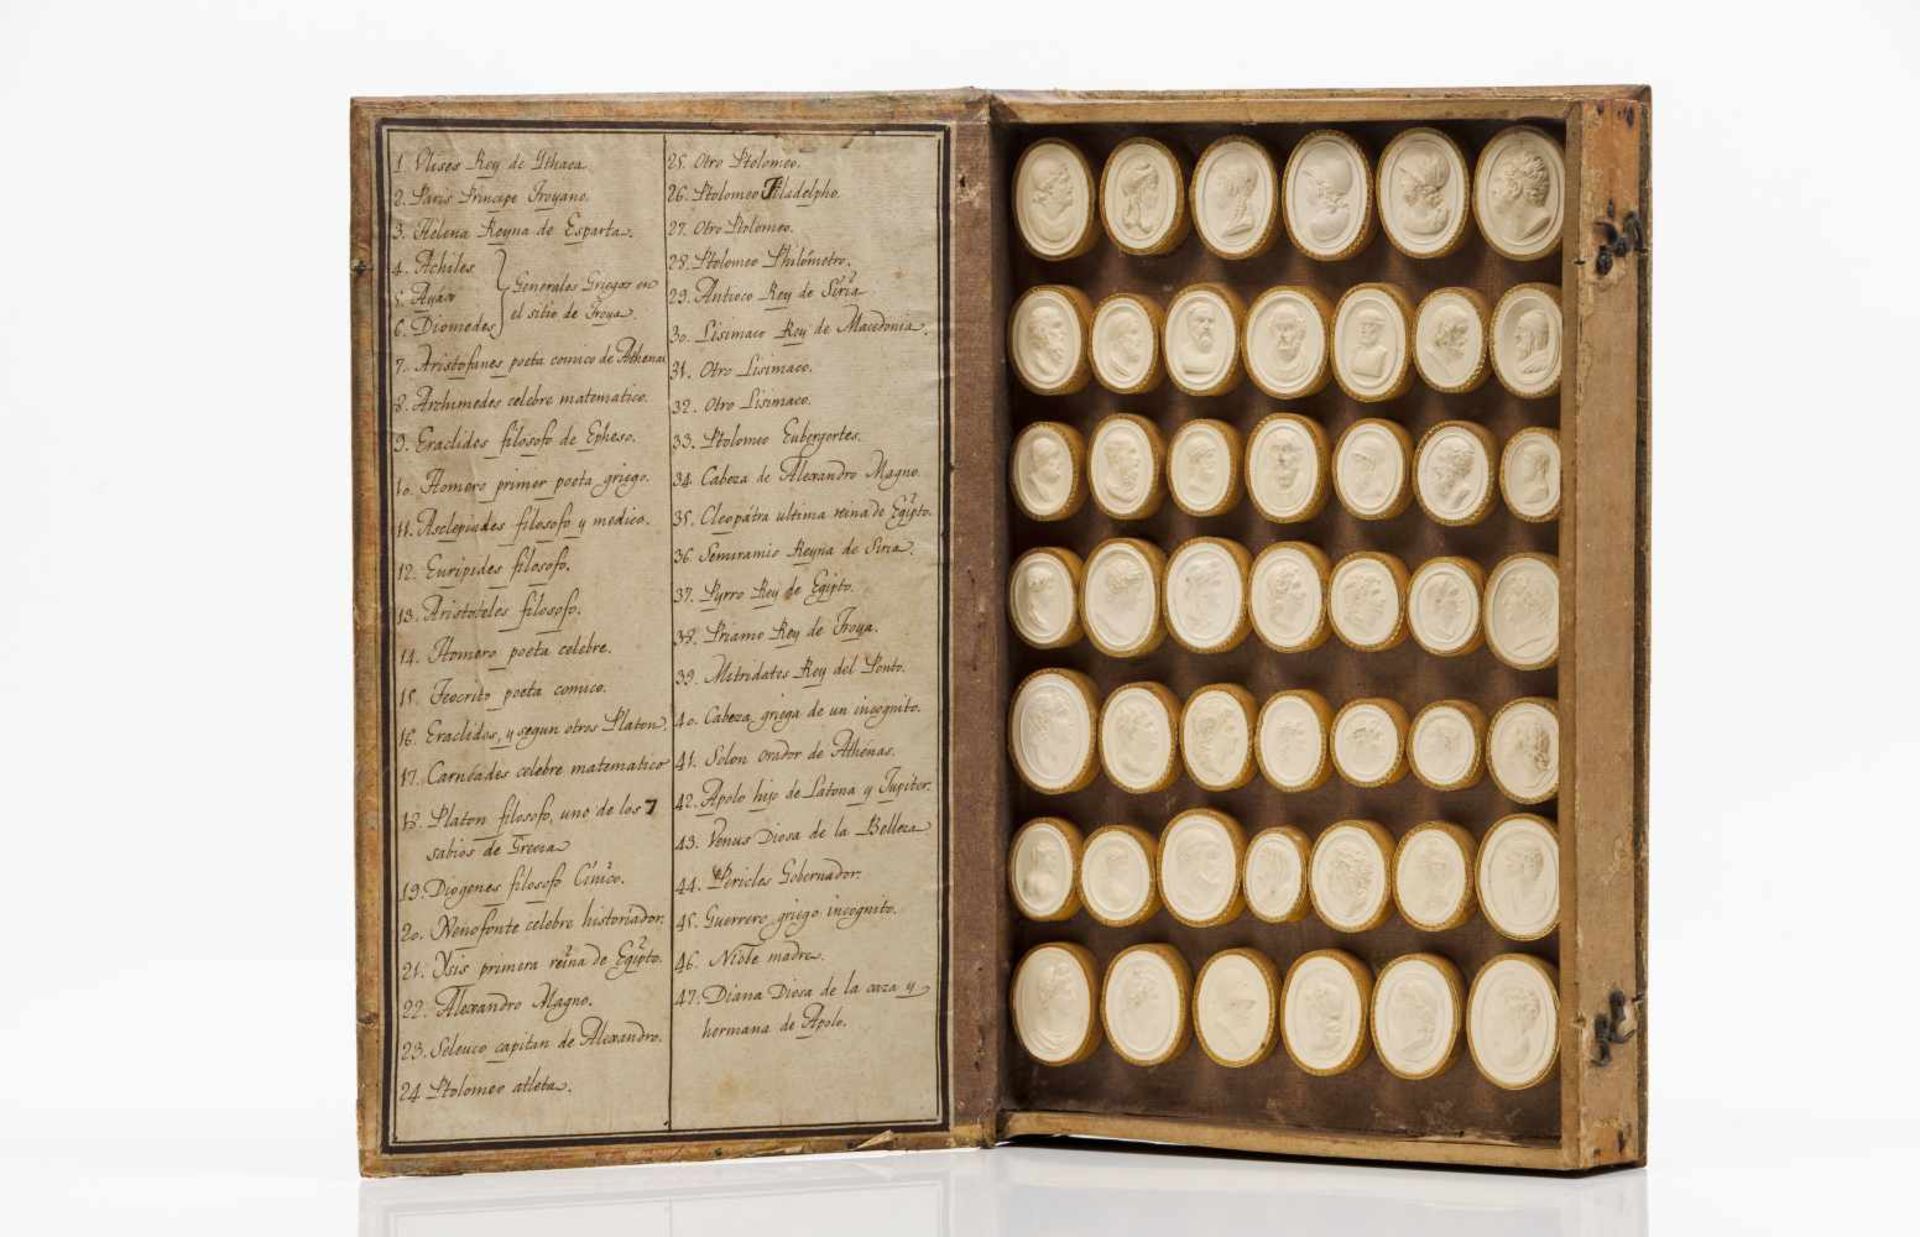 1. Ulises Rey de Ithaca.
2. Paris Principe Troyano.
3. Helena Reyna de Esparta.
4. Achiles
5. Ayáx
6. Diomedes
Generales Griegos en
el sitio de Troya.
7. Aristofanes poeta comico de Athenas
8. Archimedes celebre matematico.
9. Eraclides filosofo de Epheso.
10. Homero primer poeta griego.
11. Asclepiades filosofo y medico.
12. Euripides filosofo.
13. Aristoteles filosofo.
14. Homero poeta celebre.
15. Teocrito poeta comico.
16. Eraclides, y segun otros Platon.
17. Carnéades celebre matematico
18. Platon filosofo, uno de los 7
sabios de Grecia
19. Diogenes filosofo Cinico.
20. Xenofonte celebre historiador.
21. Ysis primera reina de Egipto.
22. Alexandro Magno.
23. Seleuco capitan de Alexandro.
24. Ptolomeo atleta.
25. Otro Ptolomeo.
26. Ptolomeo Filadelpho.
27. Otro Ptolomeo.
28. Ptolomeo Philómetro.
29. Antioco Rey de Siria
30. Lisimaco Rey de Macedonia.
31. Otro Lisimaco.
32. Otro Lisimaco.
33. Ptolomeo Eubergertes.
34. Cabeza de Alexandro Magno.
35. Cleopátra ultima reina de Egipto.
36. Semiramis Reyna de Siria.
37. Pyrro Rey de Egipto.
38. Priamo Rey de Troya.
39. Mitridates Rey del Ponto.
40. Cabeza griega de un incognito.
41. Solon orador de Athénas.
42. Apolo hijo de Latona y Jupiter.
43. Venus Diosa de la Belleza
44. Péricles Gobernador.
45. Guerrero griego incognito.
46. Niobe madre.
47. Diana Diosa de la caza y
hermana de Apolo.